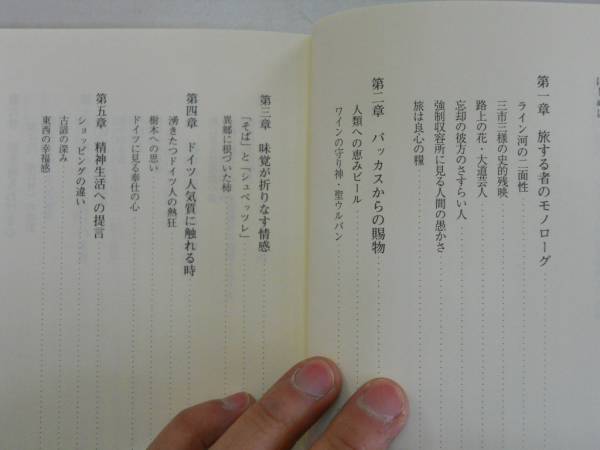 第一章　旅する者のモノローグ
ライン河の二面性
三市三様の史的残映
路上の花・大道芸人
忘却の彼方のさすらい人
強制収容所に見る人間の愚かさ
旅は良心の糧
第二章　バッカスからの賜物
人類への恵みビール
ワインの守り神・聖ウルバン
第三章　味覚が折りなす情感
「そば」と「シュペッツレ」
異郷に根づいた柿
第四章　ドイツ人気質に触れる時
湧きたつドイツ人の熱狂
樹木への思い
ドイツに見る奉仕の心
第五章　精神生活への提言
ショッピングの違い
古諺の深み
東西の幸福感